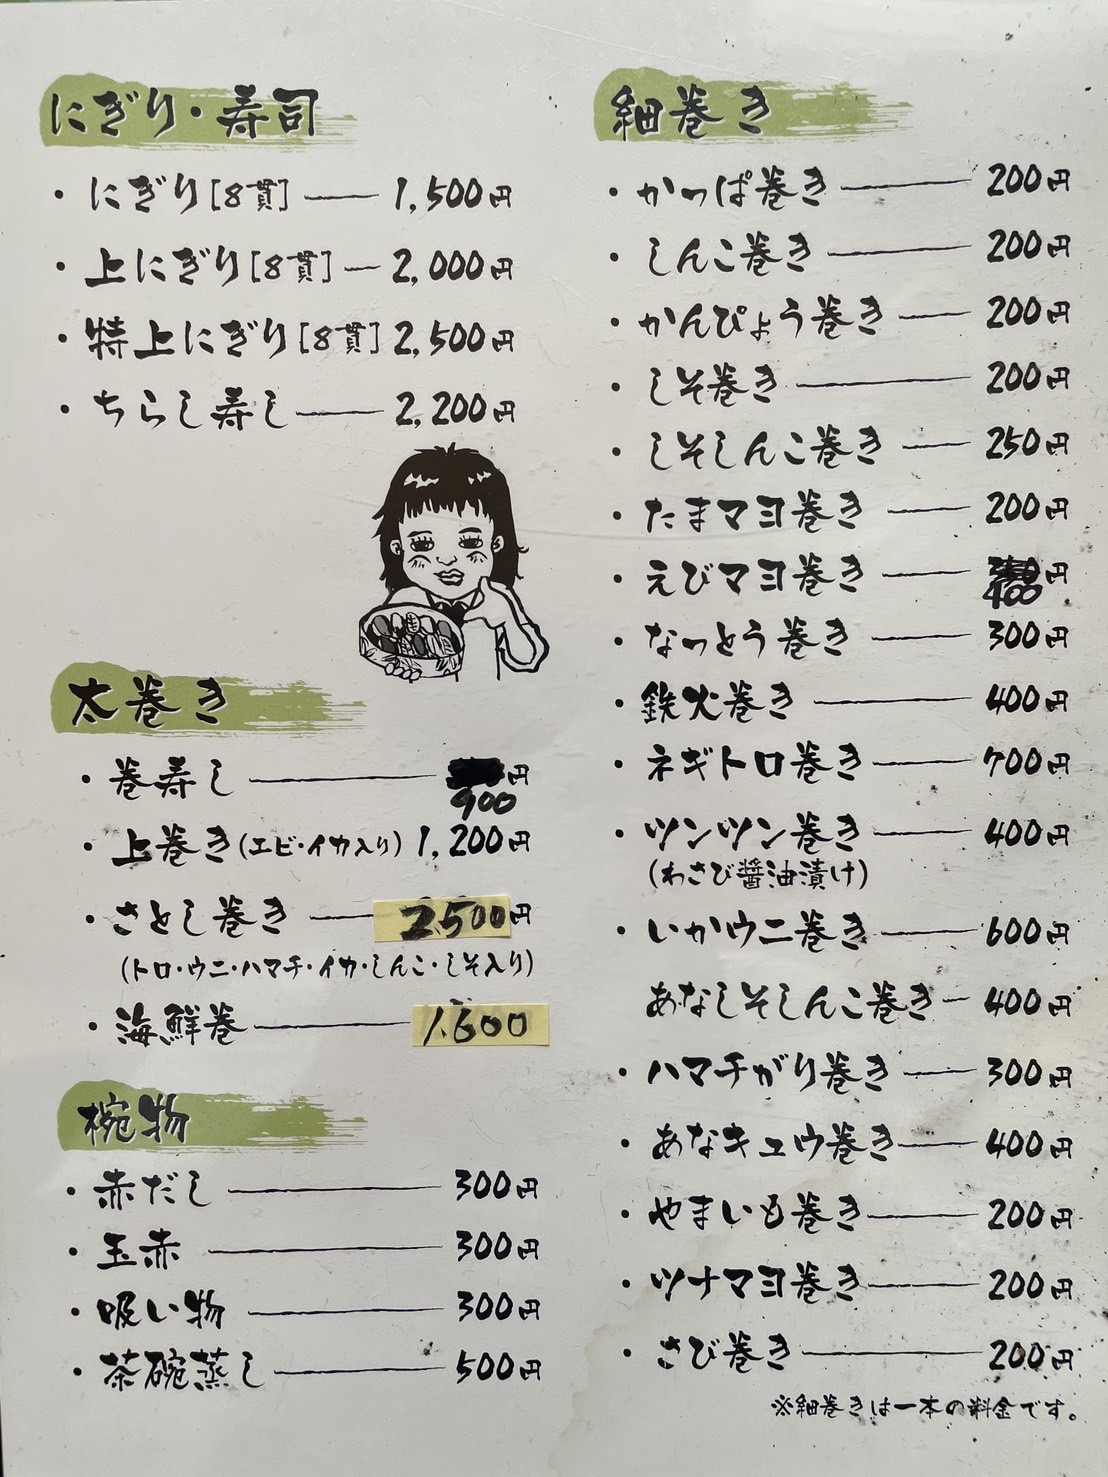 にぎり・寿司
・にぎり[8貫] 1,500円
・上にぎり[8貫] 2,000円
・特上にぎり[8貫] 2,500円
・ちらし寿し 2,200円
太巻き
・巻寿し 円
900
・上巻き(エビ・イカ入り) 1,200円
・さとし巻き 2,500円
(トロ・ウニ・ハマチ・イカ・しんこ・しそ入り)
・海鮮巻 1,600
椀物
・赤だし 300円
・玉赤 300円
・吸い物 300円
・茶碗蒸し 500円
細巻き
・かっぱ巻き 200円
・しんこ巻き 200円
・かんぴょう巻き 200円
・しそ巻き 200円
・しそしんこ巻き 250円
・たまマヨ巻き 200円
・えびマヨ巻き 円
400
・なっとう巻き 300円
・鉄火巻き 400円
・ネギトロ巻き 700円
・ツンツン巻き 400円
(わさび醤油漬け)
・いかウニ巻き 600円
あなしそしんこ巻き 400円
・ハマチがり巻き 300円
・あなキュウ巻き 400円
・やまいも巻き 200円
・ツナマヨ巻き 200円
・さび巻き 200円
※細巻きは一本の料金です。